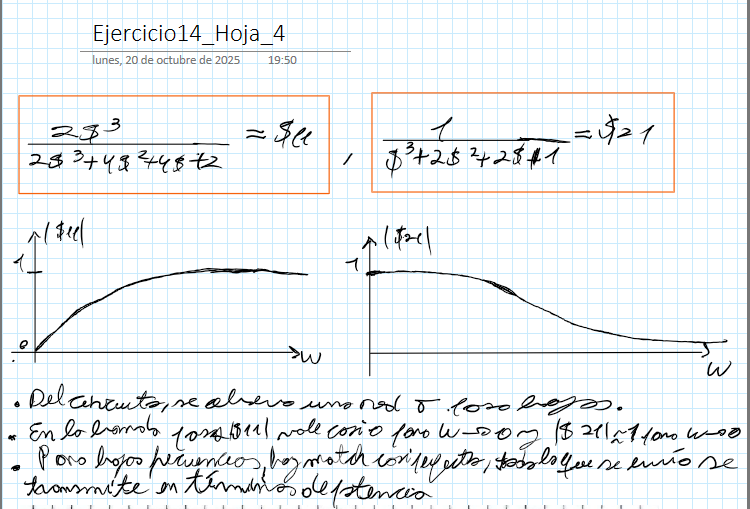 Ejercicio14_Hoja_4
lunes, 20 de octubre de 2025 19:50
2$³ / 2$³+4$²+4$+2 = $11 , 1 / $³+2$²+2$+1 = $21
|$11| |$21|
1 1
0 w w
• Del circuito, se observa una red T paso bajos.
• En la banda paso |$11| vale casi 0 para w→0 y |$21|≈1 para w→0
• Para bajas frecuencias, hay match casi perfecto, todo lo que se envío se
transmite en términos de potencia